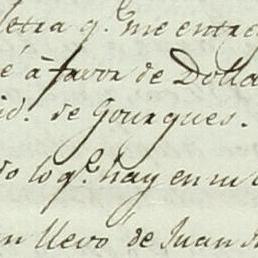 letra q.e me entre
é á favor de Dolla
id. de Gourgues.
do lo q.e hay en mi
un llevó de Juan d